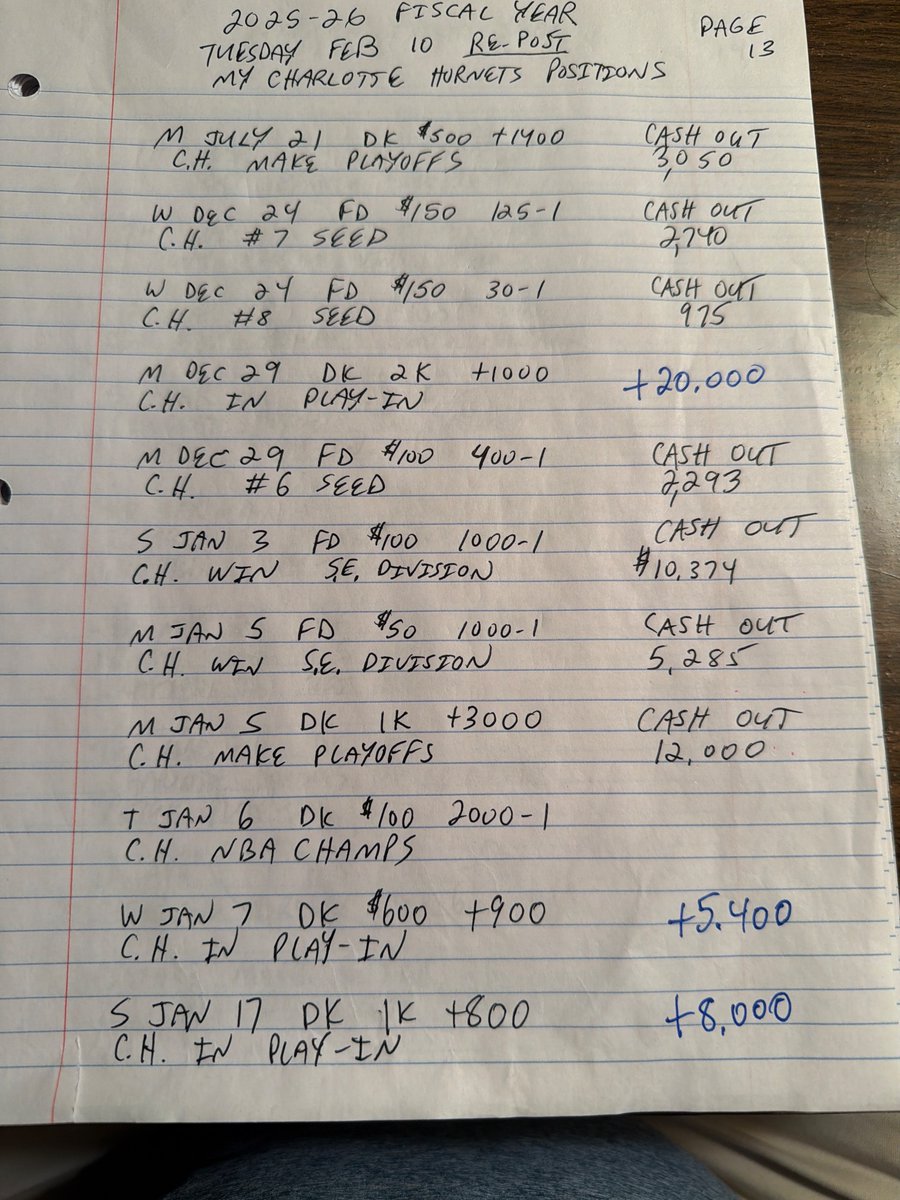 2025-26 FISCAL YEAR
PAGE 13
TUESDAY FEB 10 RE-POST
MY CHARLOTTE HORNETS POSITIONS
M JULY 21 DK $500 +1400 CASH OUT
C.H. MAKE PLAYOFFS 3,050
W DEC 24 FD $150 125-1 CASH OUT
C.H. #7 SEED 2,740
W DEC 24 FD $150 30-1 CASH OUT
C.H. #8 SEED 975
M DEC 29 DK 2K +1000 +20,000
C.H. IN PLAY-IN
M DEC 29 FD $100 400-1 CASH OUT
C.H. #6 SEED 2,293
S JAN 3 FD $100 1000-1 CASH OUT
C.H. WIN S.E. DIVISION $10,374
M JAN 5 FD $50 1000-1 CASH OUT
C.H. WIN S.E. DIVISION 5,285
M JAN 5 DK 1K +3000 CASH OUT
C.H. MAKE PLAYOFFS 12,000
T JAN 6 DK $100 2000-1
C.H. NBA CHAMPS
W JAN 7 DK $600 +900 +5.400
C.H. IN PLAY-IN
S JAN 17 DK 1K +800 +8,000
C.H. IN PLAY-IN